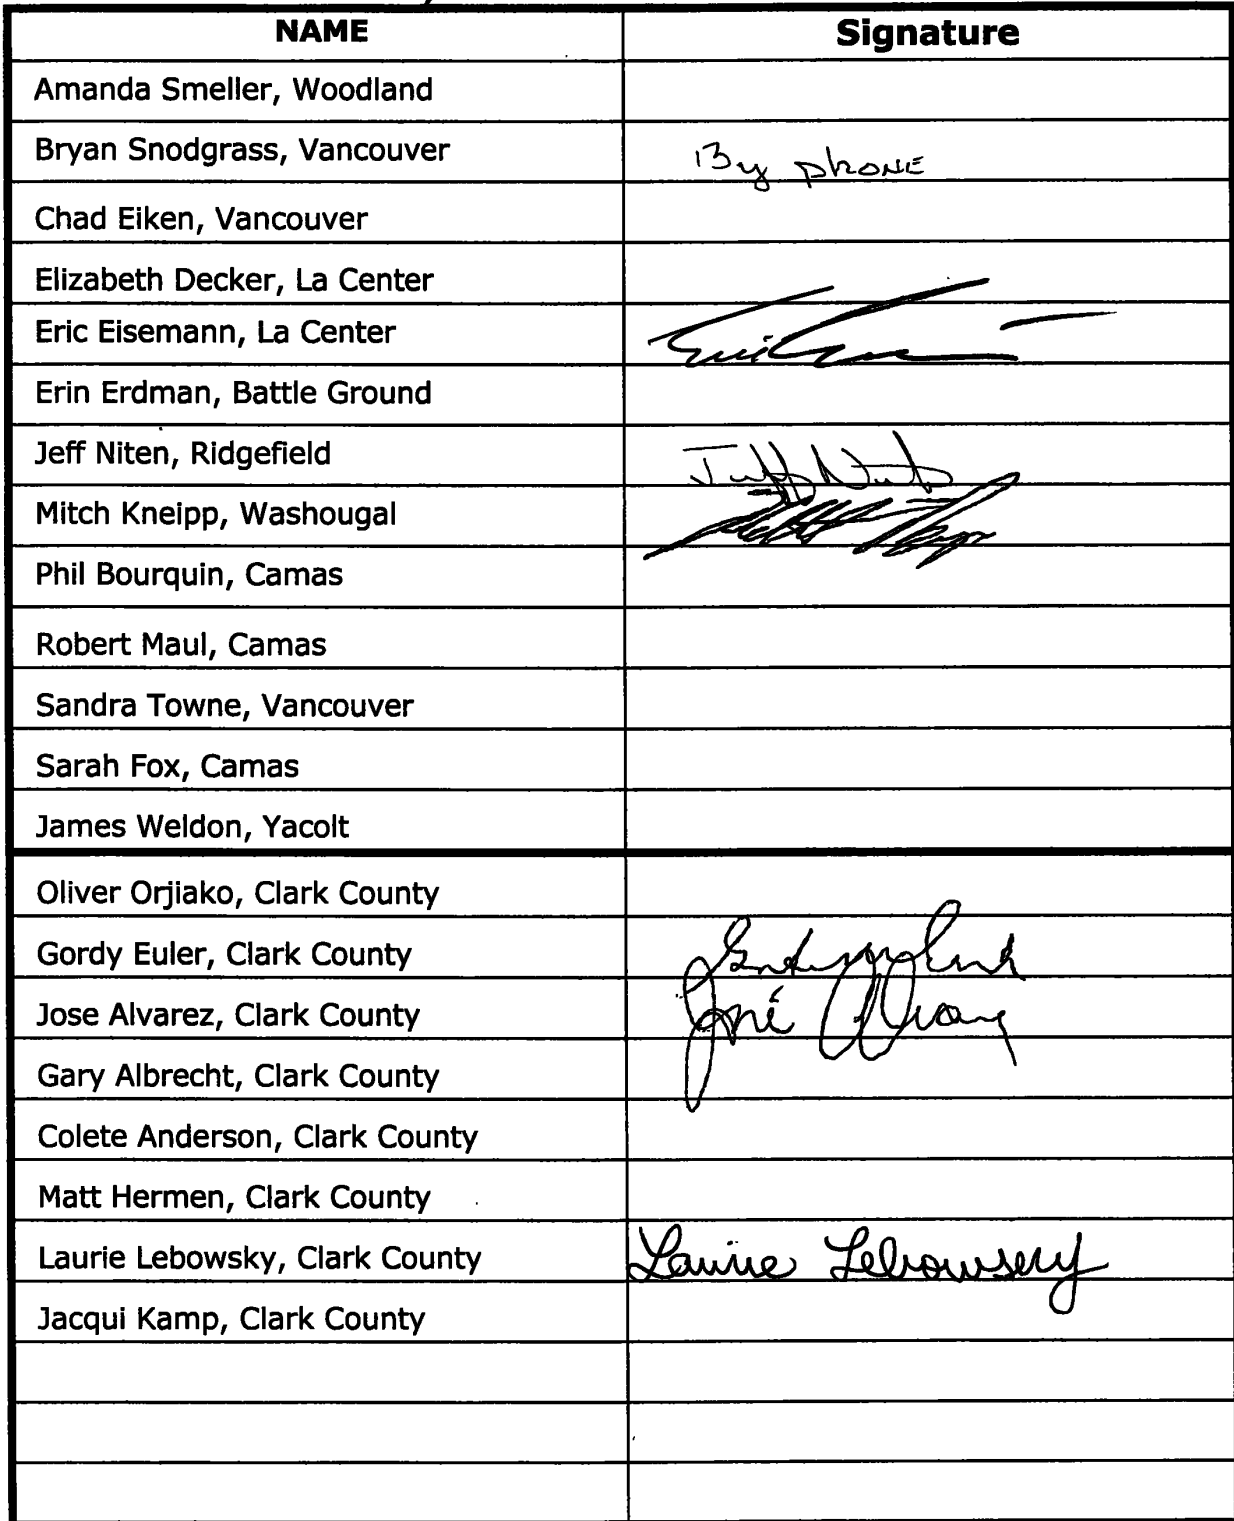 NAME Signature
Amanda Smeller, Woodland
Bryan Snodgrass, Vancouver By phone
Chad Eiken, Vancouver
Elizabeth Decker, La Center
Eric Eisemann, La Center
Erin Erdman, Battle Ground
Jeff Niten, Ridgefield Jeff Niten
Mitch Kneipp, Washougal
Phil Bourquin, Camas
Robert Maul, Camas
Sandra Towne, Vancouver
Sarah Fox, Camas
James Weldon, Yacolt
Oliver Orjiako, Clark County
Gordy Euler, Clark County
Jose Alvarez, Clark County José
Gary Albrecht, Clark County
Colete Anderson, Clark County
Matt Hermen, Clark County
Laurie Lebowsky, Clark County Laurie Lebowsky
Jacqui Kamp, Clark County